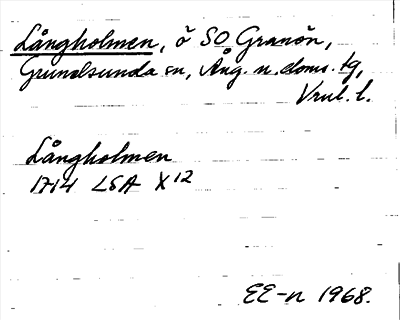 Långholmen, ö SO Granön,
Grundsunda sn, Ång. n. doms. tg,
Vrul. l.
Långholmen
1714 LSA X12
EE-n 1968.